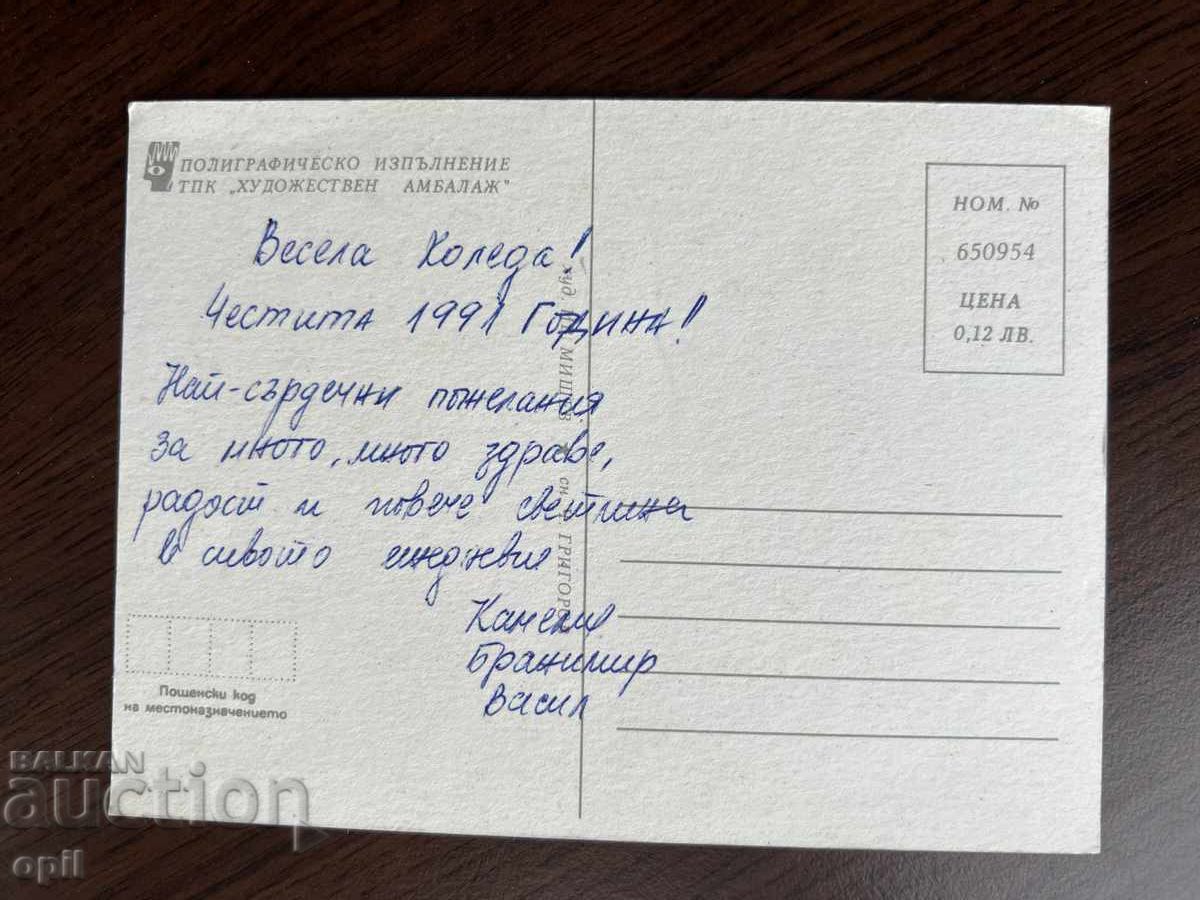 ПОЛИГРАФИЧЕСКО ИЗПЪЛНЕНИЕ
ТПК „ХУДОЖЕСТВЕН АМБАЛАЖ"
Весела Коледа!
Честита 1991 Година!
Най-сърдечни пожелания
за много, много здраве,
радост и повече светлина
в сивото ежедневие
Бранимир
Васил
НОМ. №
650954
ЦЕНА
0,12 ЛВ.
худ. МИШЕВ
сн. ГРИГОРОВ
Пощенски код
на местоназначението
BALKAN
auction
opil